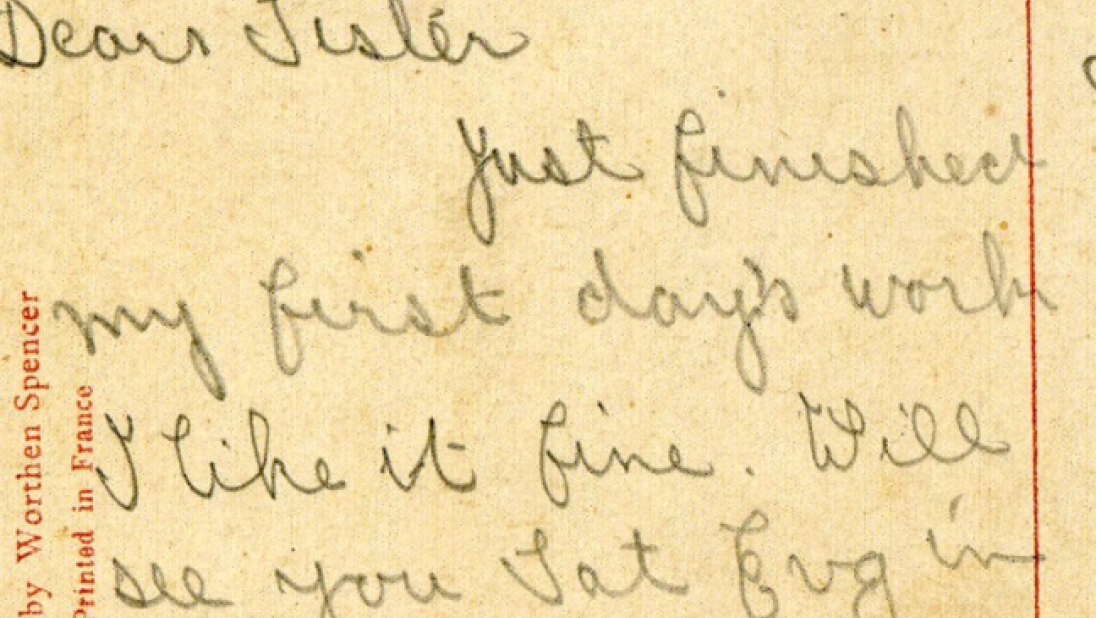 Dear Sister
Just finished
my first day's work
I like it fine. Will
see you Sat Evg in
by Worthen Spencer
Printed in France